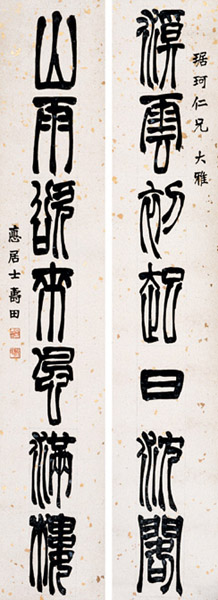 琚珂仁兄 大雅
溪雲初起日沈閣
山雨欲來風滿樓
居士壽田